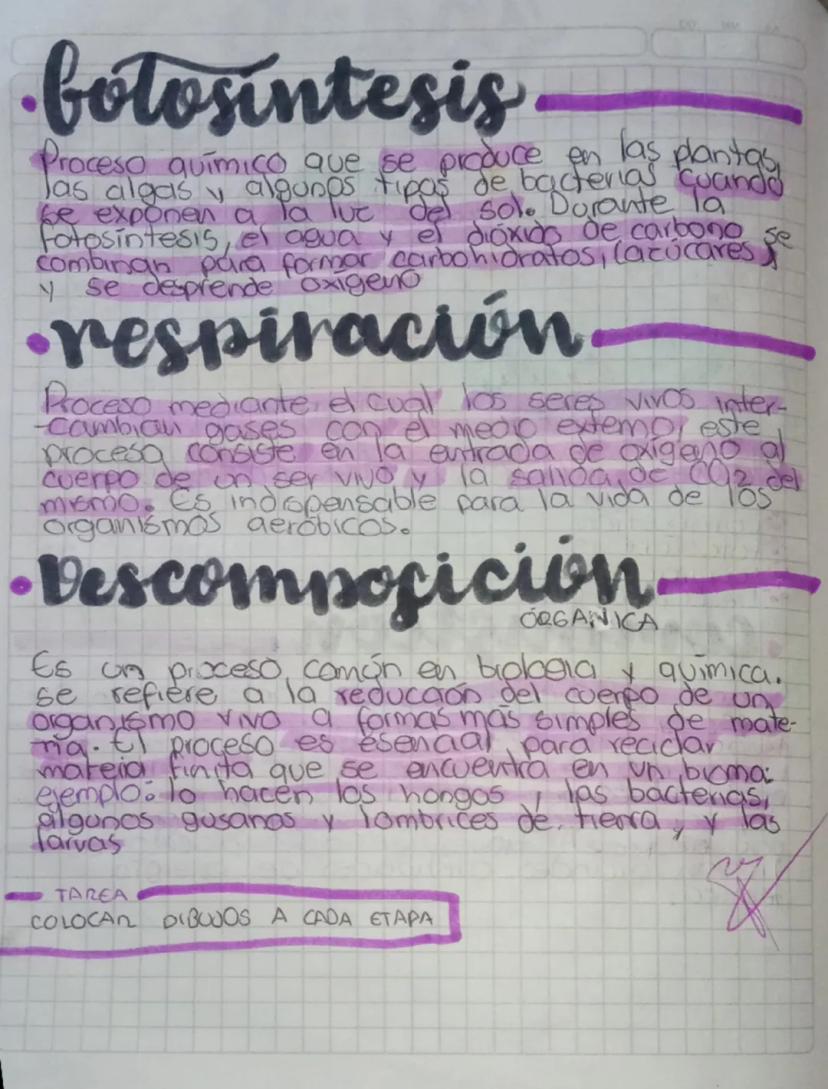 fotosíntesis
Proceso químico que se produce en las plantas,
las algas y algunos tipos de bacterias cuando
se exponen a la luz del sol. Durante la
fotosíntesis, el agua y el dióxido de carbono se
combinan para formar carbohidratos, (azúcares)
y se desprende oxigeno
respiración
Proceso mediante el cual los seres vivos inter-
-cambian gases con el medio externo, este
proceso consiste en la entrada de oxígeno al
cuerpo de un ser vivo y la salida de CO2 del
mismo. Es indispensable para la vida de los
organismos aeróbicos.
Descomposición
ORGANICA
Es un proceso común en biologia y química.
se refiere a la reducción del cuerpo de un
organismo vivo a formas más simples de mate-
ria. El proceso es esencial para reciclar
materia finita que se encuentra en un bioma:
ejemplo: lo hacen los hongos, las bacterias,
algunos gusanos y lombrices de tierra, y las
larvas
TAREA
COLOCAR DIBUJOS A CADA ETAPA